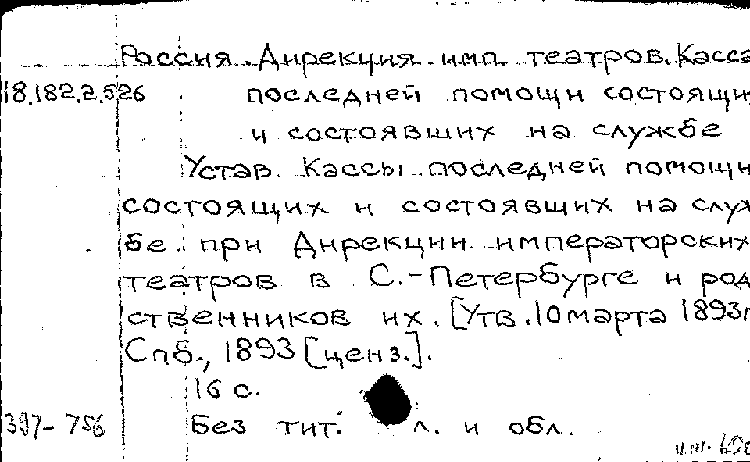 Россия. Дирекция имп. театров. Касса
18.182.2.526 последней помощи состоящи
и состоявших на службе
Устав Кассы последней помощи
состоящих и состоявших на служ
бе при Дирекции императорских
театров в С.-Петербурге и род
ственников их. [Утв. 10 марта 1893г
Спб., 1893 [ценз.].
16 с.
397-756 Без тит. л. и обл.